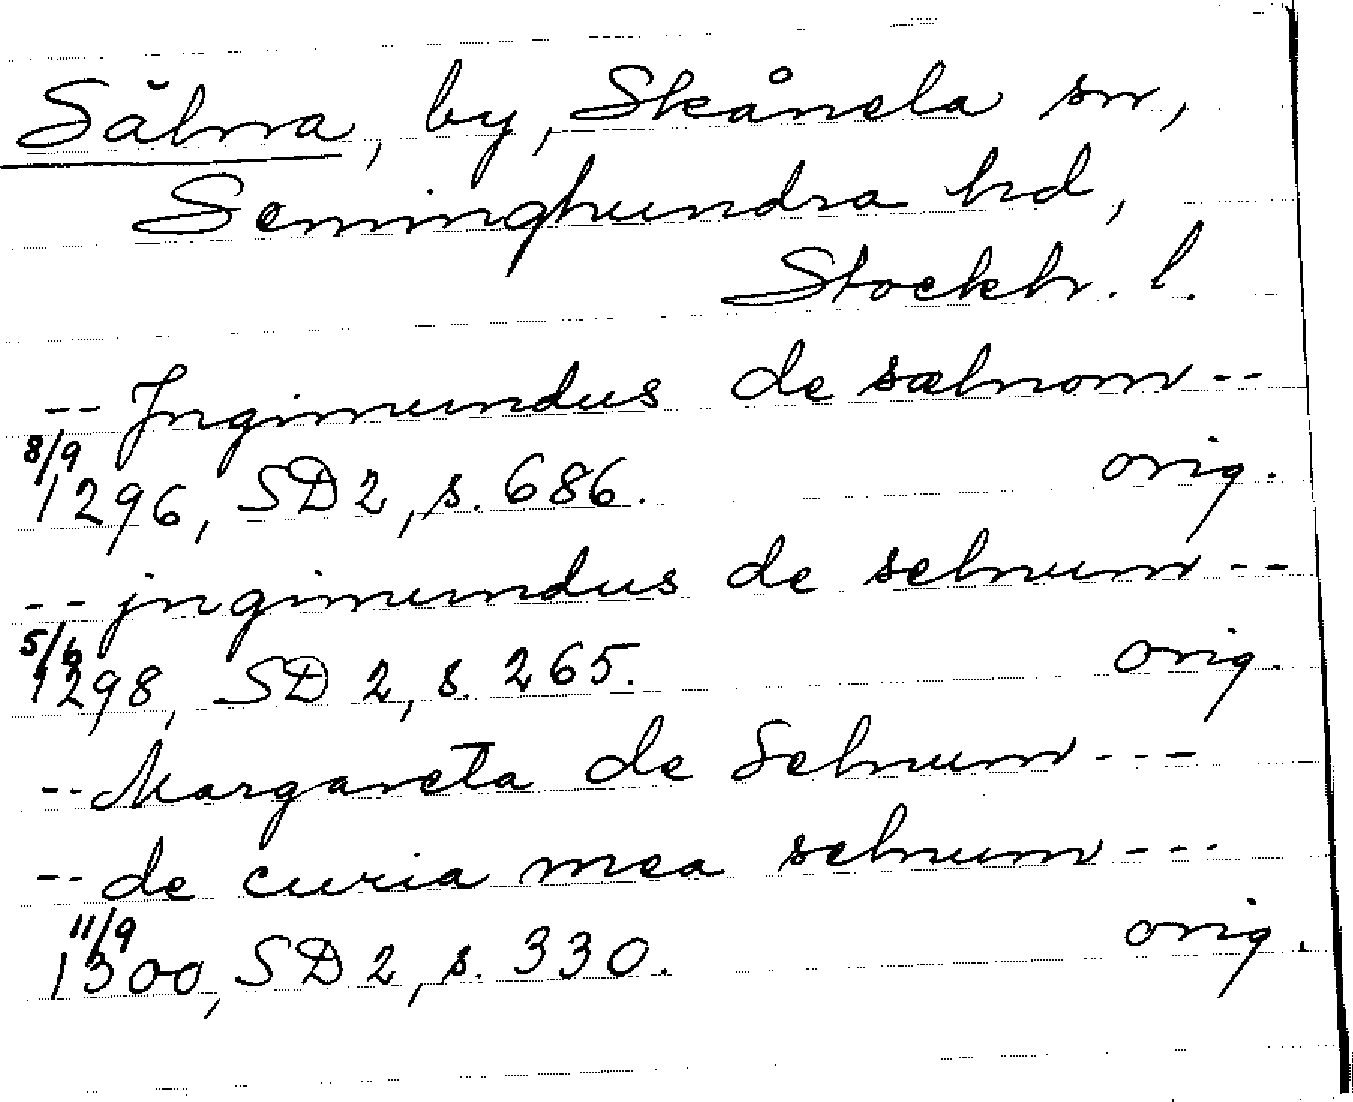 Sälna, by, Skånela sn,
Seminghundra hd,
Stockh. l.
-- Jngimundus de sælnom --
8/9
1296, SD 2, s. 686. orig.
-- jngimundus de selnum --
5/6
1298, SD 2, s. 265. orig.
-- Margareta de Selnum ---
-- de curia mea selnum ---
11/9
1300, SD 2, s. 330. orig.